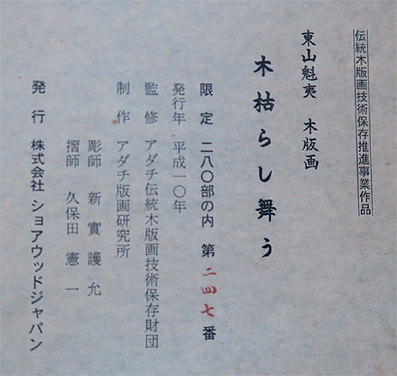 伝統木版画技術保存推進事業作品
東山魁夷 木版画
木枯らし舞う
限定 二八〇部の内 第二四七番
発行年 平成一〇年
監修 アダチ伝統木版画技術保存財団
制作 アダチ版画研究所
彫師 新實護允
摺師 久保田憲一
発行 株式会社 ショアウッドジャパン